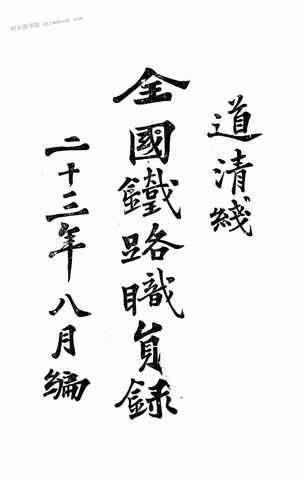 道清綫
全國鐵路職員錄
二十三年八月編